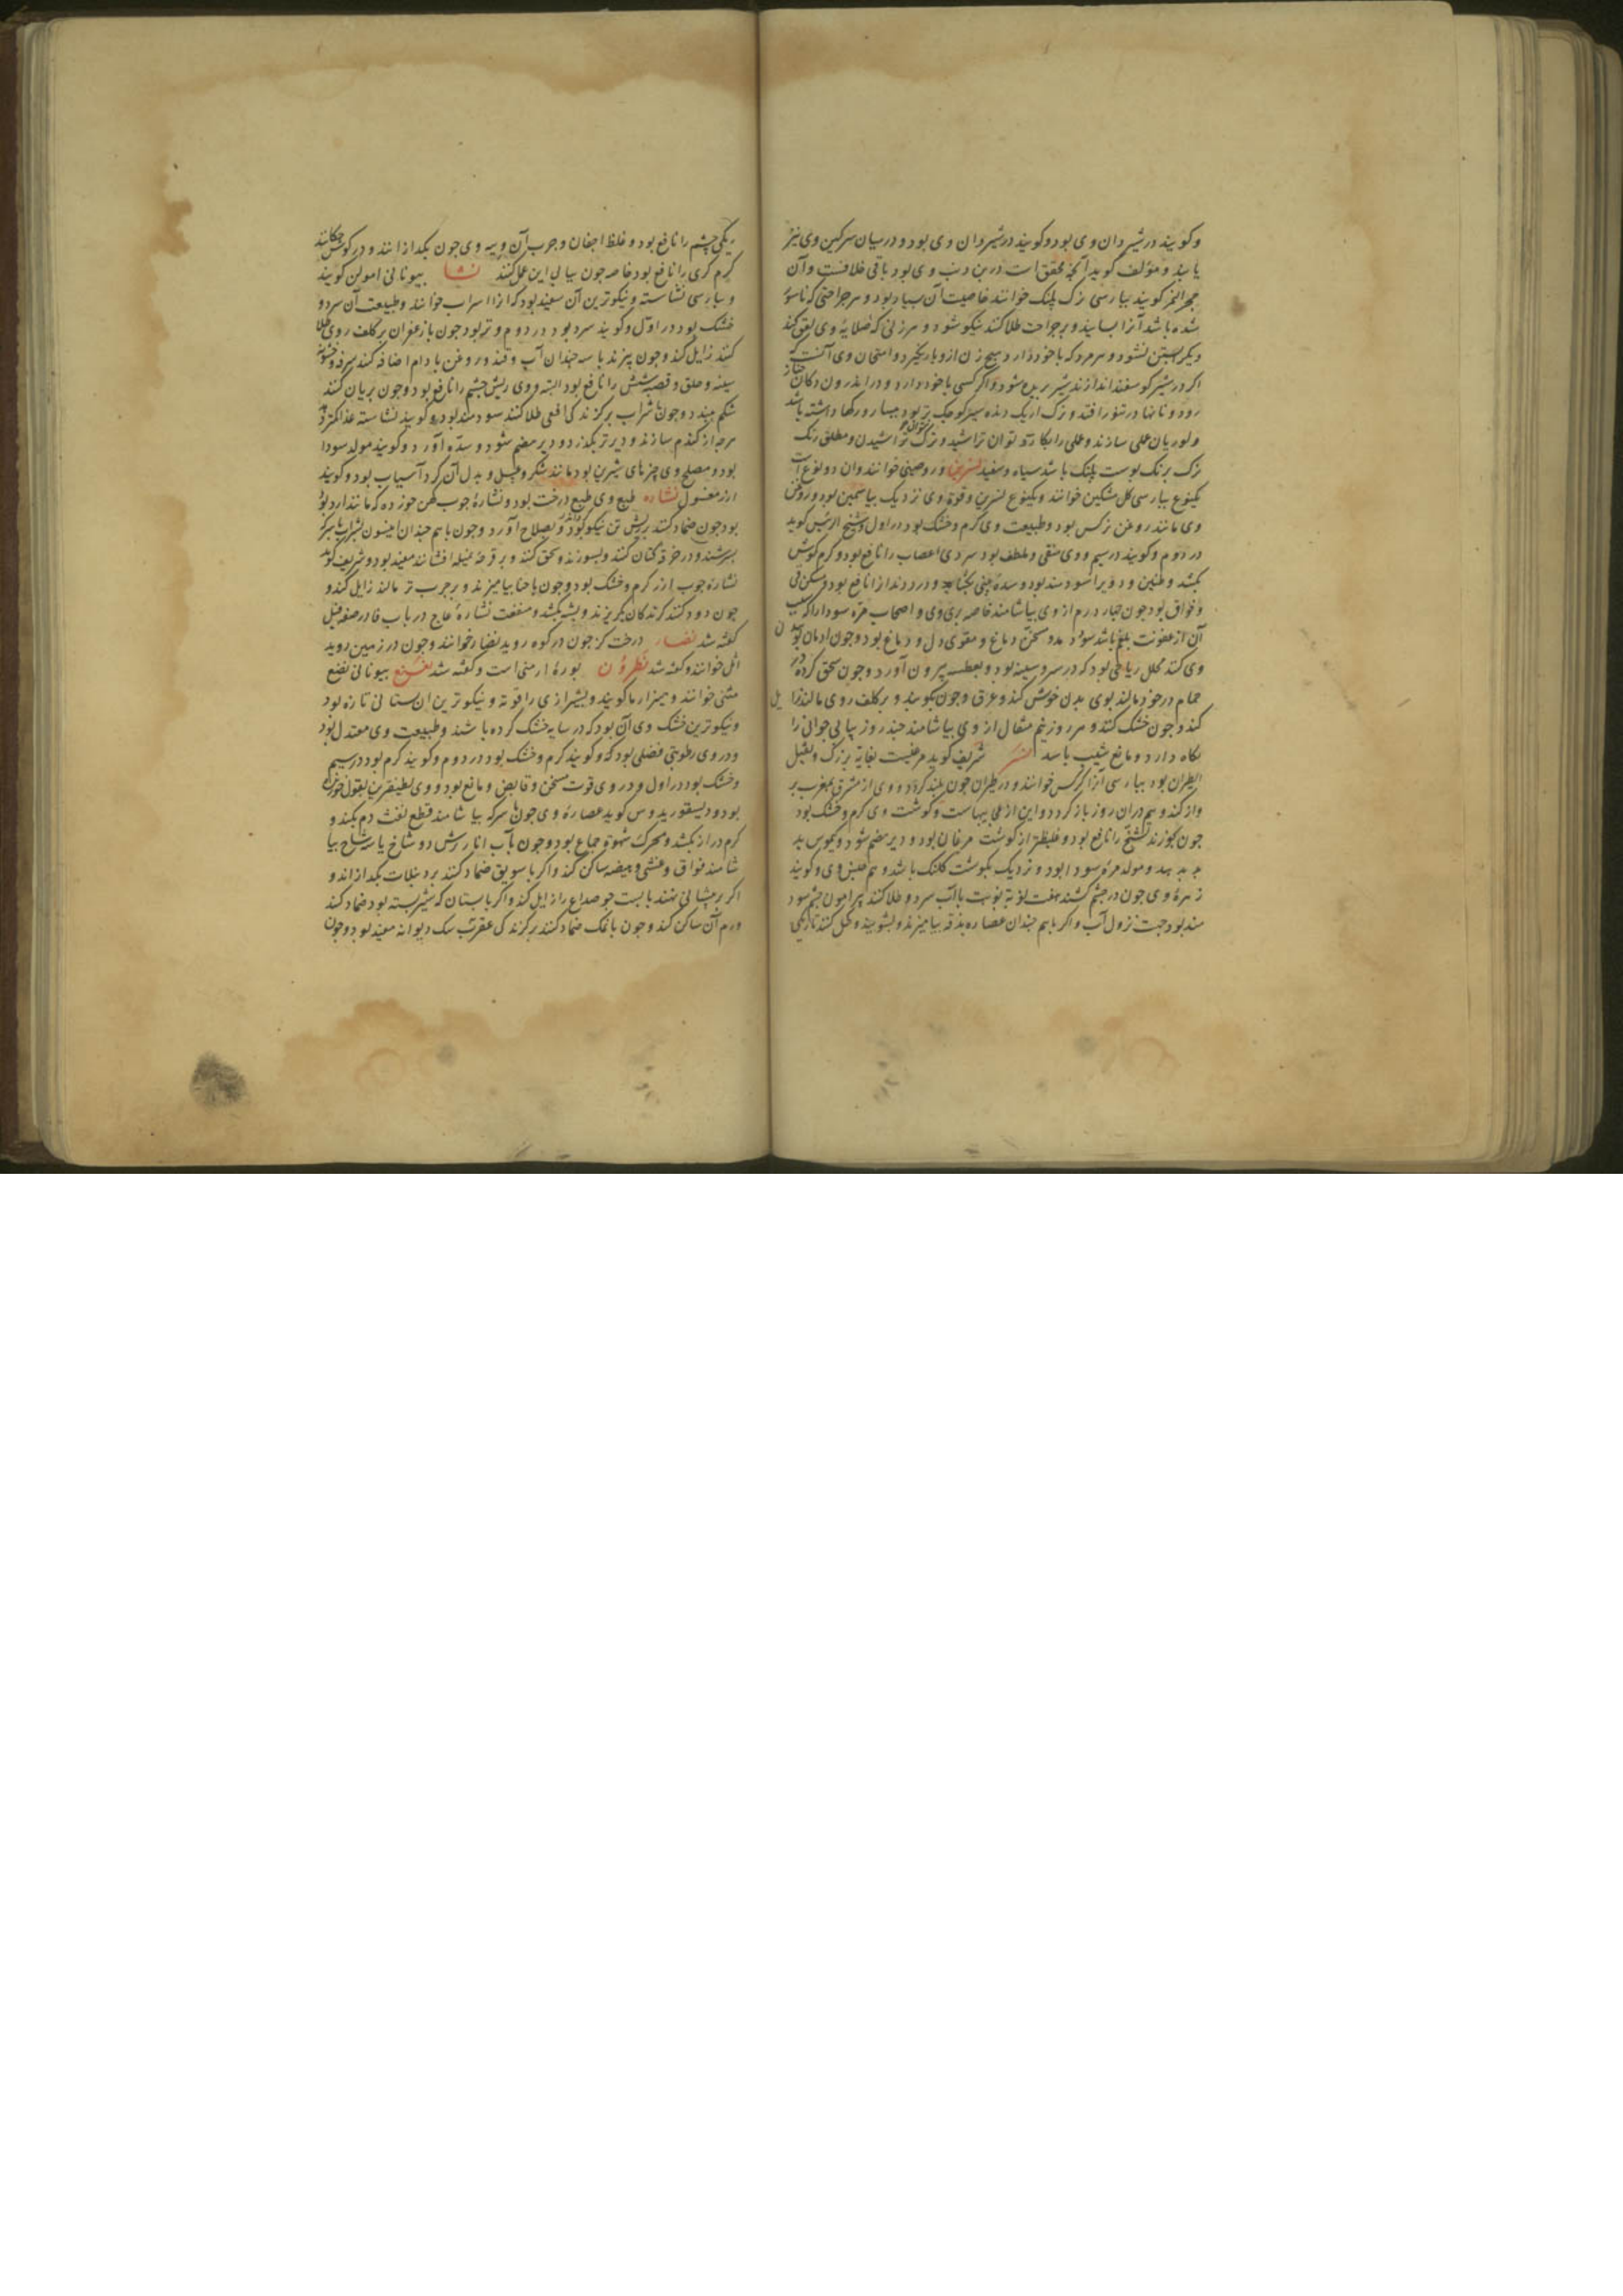 و گویند در شیردان وی بود و گویند در شیردان وی بود و در میان سرکین وی نیز
یابند و مؤلف گوید آنچه محقق است در بن دنب وی بود باقی خلافست و آن
حجر النمر گویند بپارسی زک پلنک خوانند خاصیت آن بسیار بود و هر جراحتی که ناسور
شده باشد آنرا بسایند و بر جراحت طلا کنند نیکو شود و هر زنی که صلایهٔ وی لعق کند
دیگر آبستن نشود و هر مرد که با خود دارد هیچ زن ازو بار نگیرد و امتحان وی آنست که
اگر در شیر کوسفند اندازند شیر بریده شود و اگر کسی با خود دارد و در اندرون دکان خباز
رود و نانها در تنور افتد و زک
و لوریان عملی سازند و عملی را بکارد توان تراشید و زک نتوان تراشیدن و مطلق رنک
زک برنک پوست پلنک باشد سیاه و سفید نسرین ورد صینی خوانند و آن دو نوع است
یکنوع بپارسی کل مشکین خوانند و یکنوع نسرین و قوة وی نزدیک بیاسمین بود و روغن
وی مانند روغن نرکس بود و طبیعت وی کرم و خشک بود در اول و شیخ الرئیس کوید
در دوم و کویند در سیم و وی منقی و ملطف بود سردی اعصاب را نافع بود و کرم کوش
بکشد و طنین و دوی را سودمند بود و سدهٔ بینی بکشاید و درد دندان را نافع بود و مسکن قی
و فواق بود چون چهار درم از وی بیاشامند خاصه بری وی و اصحاب مره سودا را که سبب
آن از عفونت بلغم باشد سود دهد و مسخن دماغ و مقوی دل و دماغ بود و چون ادمان بوییدن
وی کنند محلل ریاحی بود که در سر و سینه بود و بعطسه بیرون آورد و چون سحق کرده در
حمام در خود مالند بوی بدن خوش کند و عرق و چون بکوبند و بر کلف روی مالند زایل
کند و چون خشک کنند و هر روز نیم مثقال از وی بیاشامند چند روز پیاپی جوانی را
نکاه دارد و مانع شیب باشد نسر شریف کوید مرغیست بغایة بزرک و ثقیل
الطیران بود بپارسی آنرا کرکس خوانند و در طیران چون بلند کردد و وی از مشرق بمغرب پر
واز کند و هم در آن روز باز کردد و این از عجایبهاست و کوشت وی کرم و خشک بود
چون بخورند تشنج را نافع بود و غلیظتر از کوشت مرغان بود و دیر هضم شود و کیموس بد
دهد و مولد مرهٔ سودا بود و نزدیک بکوشت کلنک باشد و هم چنین وی و کویند
زهرهٔ وی چون در چشم کشند هفت نوبة بنوبت با آب سرد و طلا کنند پیرامون چشم سود
مند بود جهت نزول آب و اگر با هم چندان عصاره بیامیزند و بشویند و کحل کنند تاریکی
ریکی چشم را نافع بود و غلظ اجفان و جرب آن و پیه وی چون بکدازانند و در کوش چکانند
کرم کری را نافع بود خاصه چون پیاپی این عمل کنند نشا بیونانی امولن کویند
و بپارسی نشاسته و نیکوترین آن سفید بود که از اسراب خوانند و طبیعت آن سرد و
خشک بود در اول و کویند سرد بود در دوم و تر بود چون با زعفران بر کلف روی طلا
کنند زایل کند و چون پزند با سه چندان آب و قند و روغن بادام اضافه کنند سرفه و خشونة
سینه و حلق و قصبه شش را نافع بود البته و وی ریش چشم را نافع بود و چون بریان کنند
شکم ببندد و چون با شراب بر کزندکی افعی طلا کنند سودمند بود و کویند نشاسته غذا کمتر دهد
هرچه از کندم سازند و دیرتر بکذرد و دیر هضم شود و سده آورد و کویند مولد سودا
بود و مصلح وی چیزهای شیرین بود مانند شکر و عسل و بدل آن کرد آسیاب بود و کویند
ارز مغسول نشاره طبع وی طبع درخت بود و نشارهٔ چوب کهن خورده که مانند آرد بود
بود چون ضماد کنند بر ریش تن نیکو بود و بصلاح آورد و چون با هم چندان انیسون بشراب یا سرکه
بسرشند و در خرقهٔ کتان کنند و بسوزند و سحق کنند و بر قرحه نمیله افشانند مفید بود و شریف کوید
نشارهٔ چوب ارز کرم و خشک بود و چون با حنا بیامیزند و بر جرب تر مالند زایل کند و
چون دود کنند کزندکان بکریزند و پشه بکشد و منفعت نشارهٔ عاج در باب فا در صفة فیل
کفته شد نضار درخت کز چون در کوه روید نضار خوانند و چون در زمین روید
اثل خوانند و کفته شد نطرون بورهٔ ارمنی است و کفته شد نعنع بیونانی نضنع
مثنی خوانند و هیزار ما کویند و بشیرازی راقوته و نیکوترین آن بستانی تازه بود
و نیکوترین خشک وی آن بود که در سایه خشک کرده باشند و طبیعت وی معتدل بود
و در وی رطوبتی فضلی بود که و کویند کرم و خشک بود در دوم و کویند کرم بود در سیم
و خشک بود در اول و در وی قوت مسخن و قابض و مانع بود و وی لطیفترین بقول خوردنی
بود و دیسقوریدوس کوید عصارهٔ وی چون با سرکه بیاشامند قطع نفث دم بکند و
کرم دراز بکشد و محرک شهوة جماع بود و چون بآب انار ترش دو شاخ یا سه شاخ بیا
شامند فواق و غشی و هیضه ساکن کند و اگر با سویق ضماد کنند بر دبیلات بکدازاند و
اگر بر پیشانی نهند با پست جو صداع را زایل کند و اگر با پستان که شیر بسته بود ضماد کنند
ورم آن ساکن کند و چون با نمک ضماد کنند بر کزندکی عقرب سک دیوانه مفید بود و چون